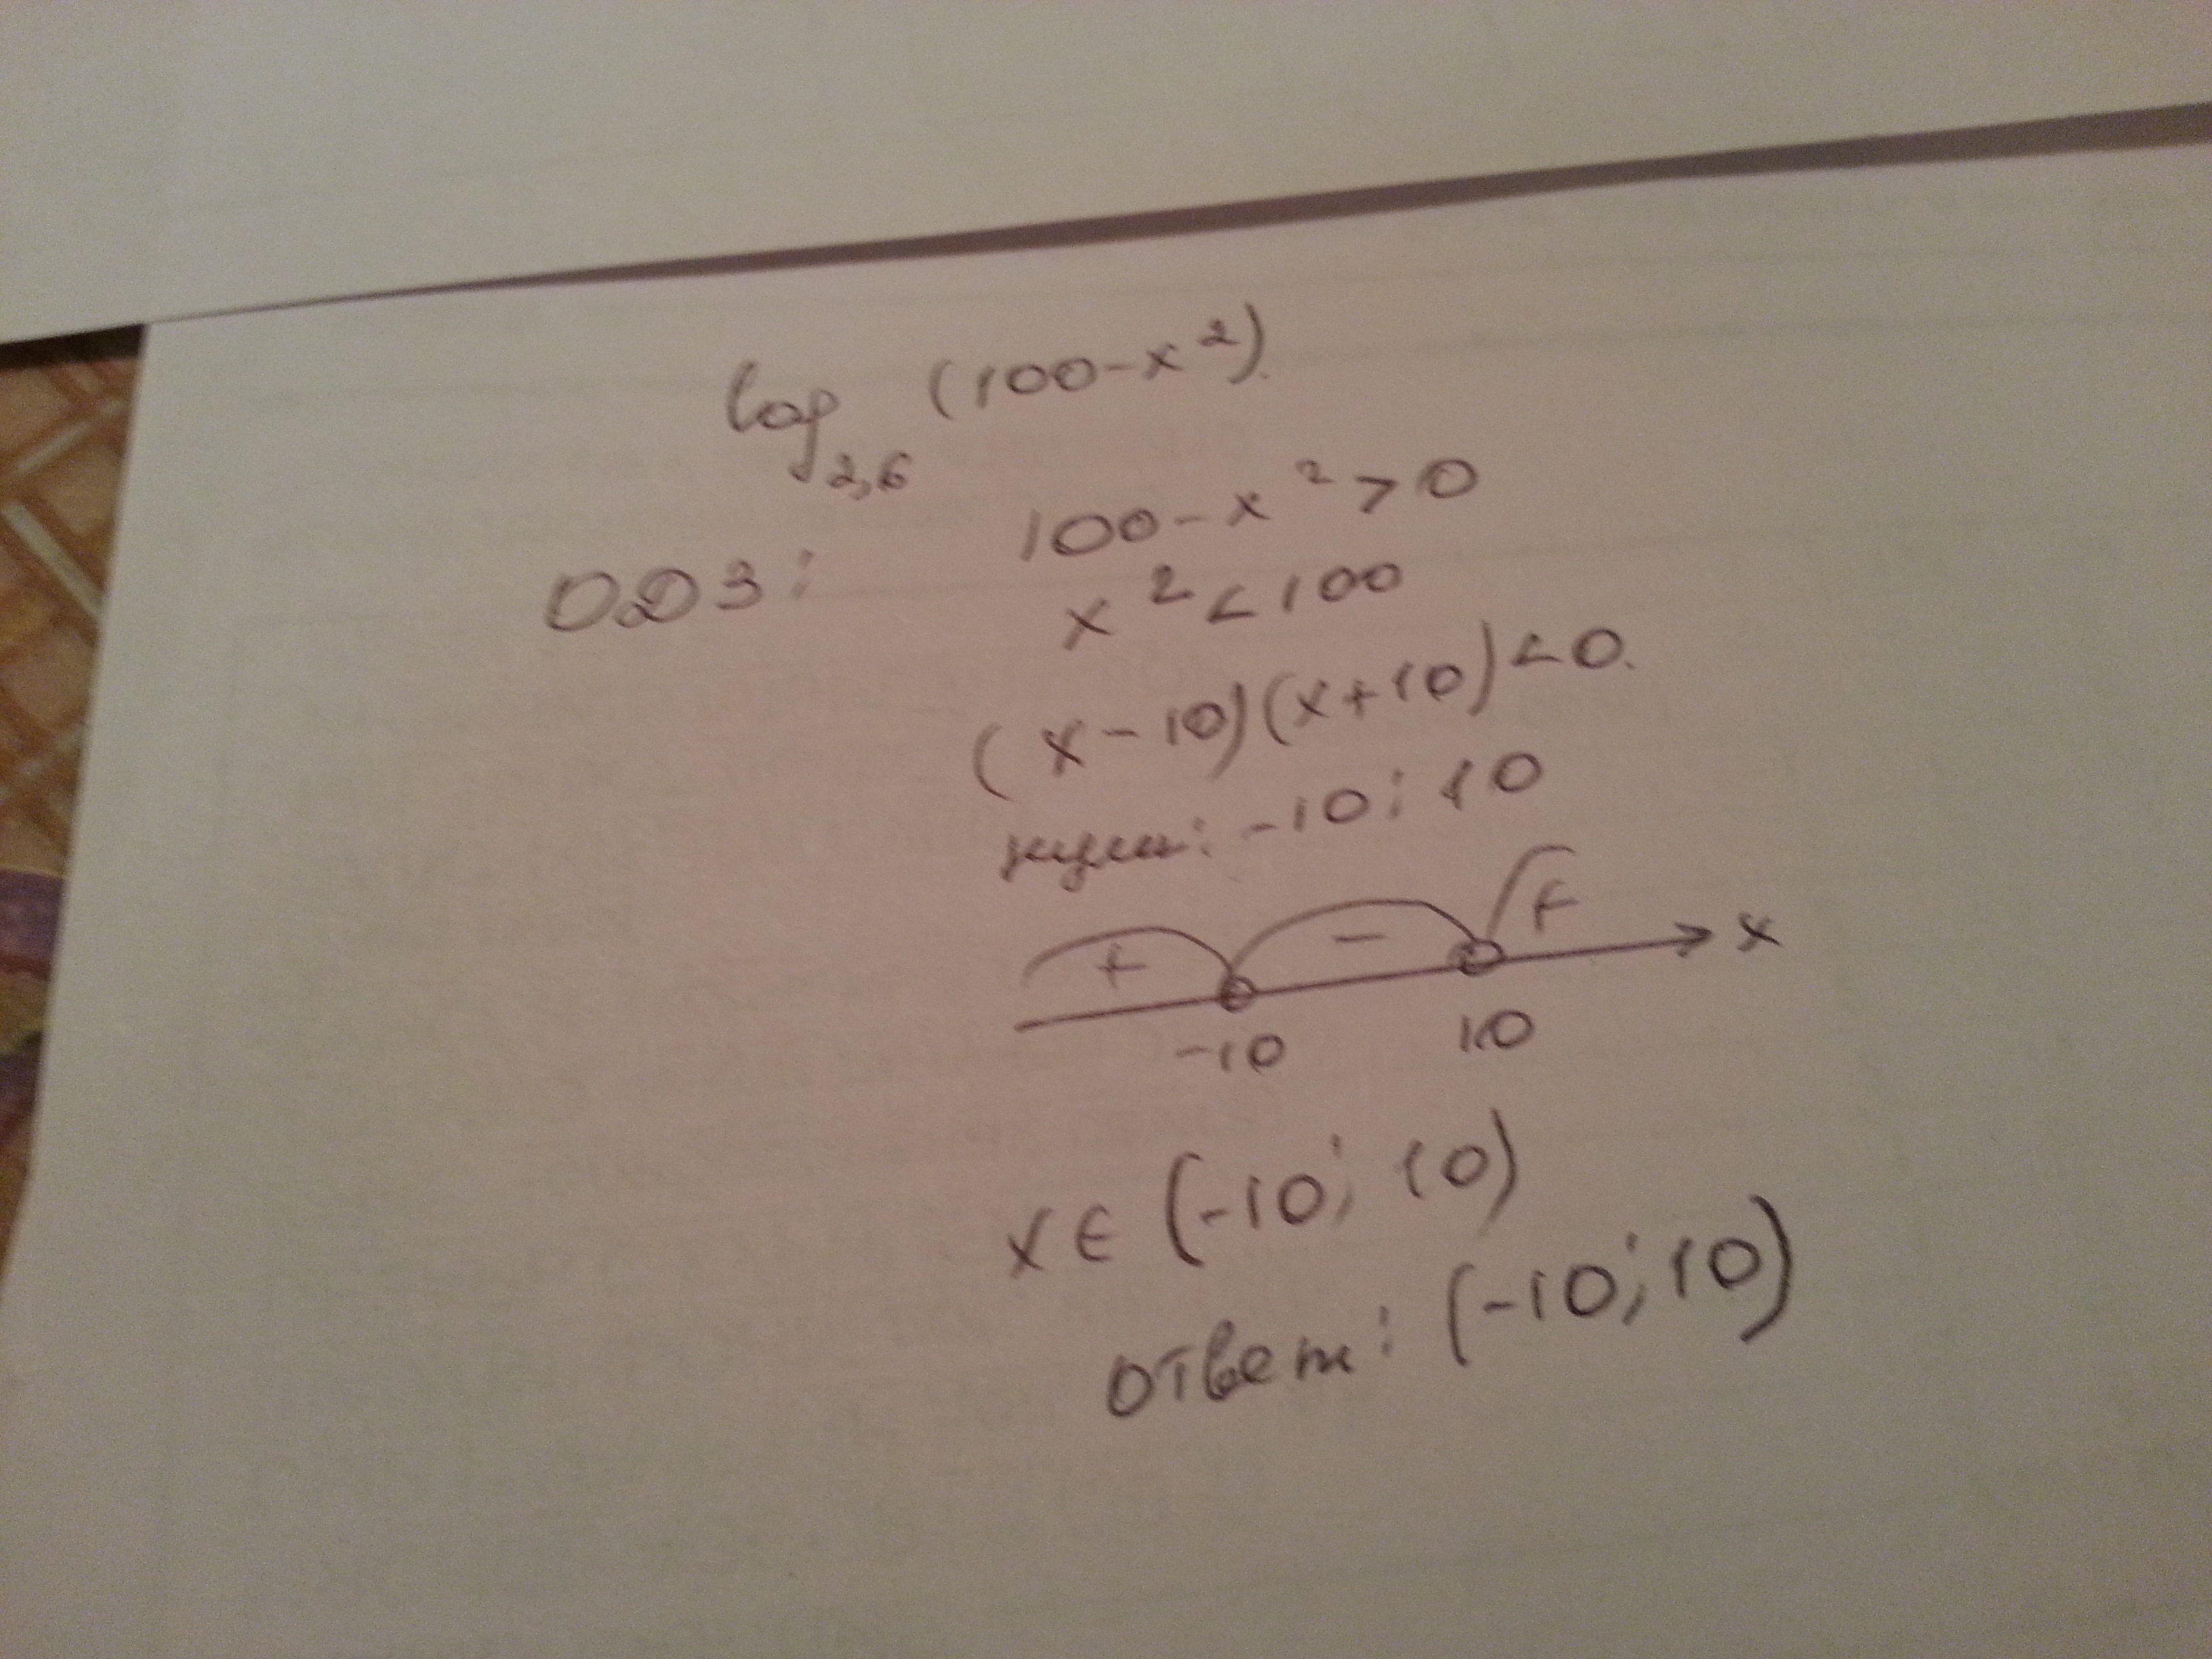 log 2,6 (100-x²).
ОДЗ: 100-x²>0
x²<100
(x-10)(x+10)<0.
нули: -10; 10
+ - + x
-10 10
x∈(-10; 10)
ответ: (-10; 10)